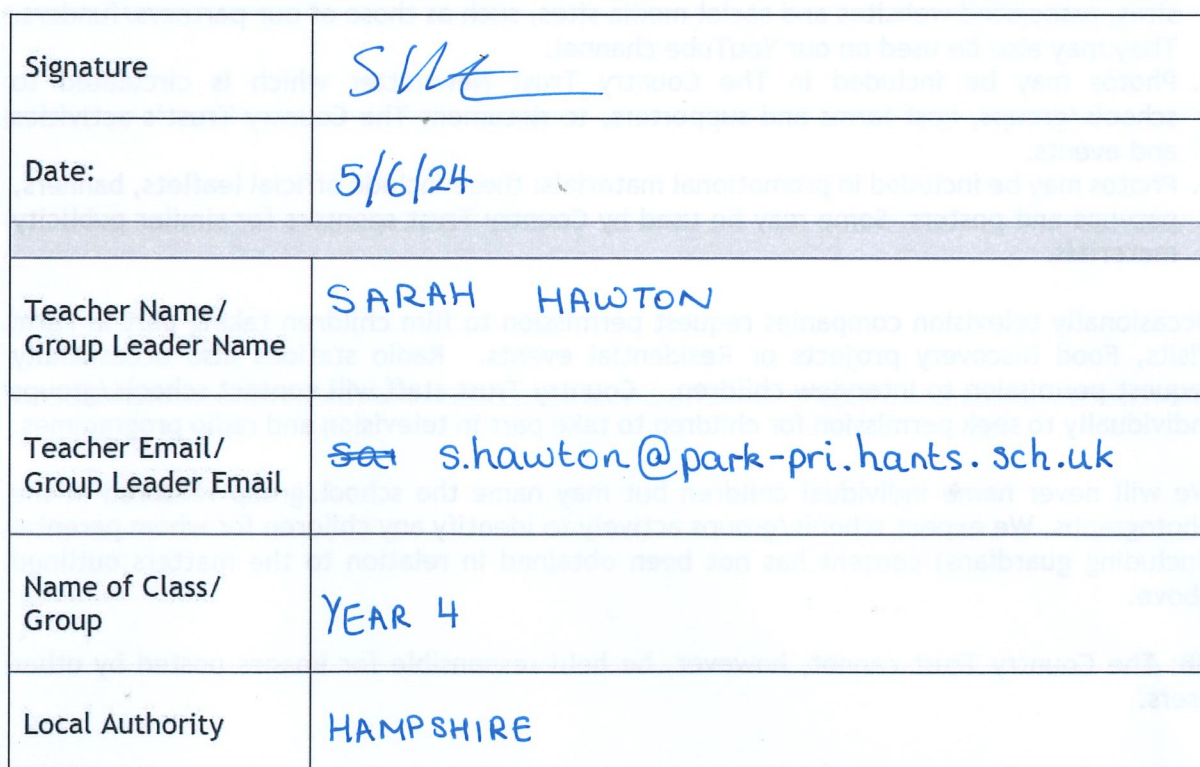 Signature
Date: 5/6/24
Teacher Name/
Group Leader Name
SARAH HAWTON
Teacher Email/
Group Leader Email
s.hawton@park-pri.hants.sch.uk
Name of Class/
Group
YEAR 4
Local Authority
HAMPSHIRE